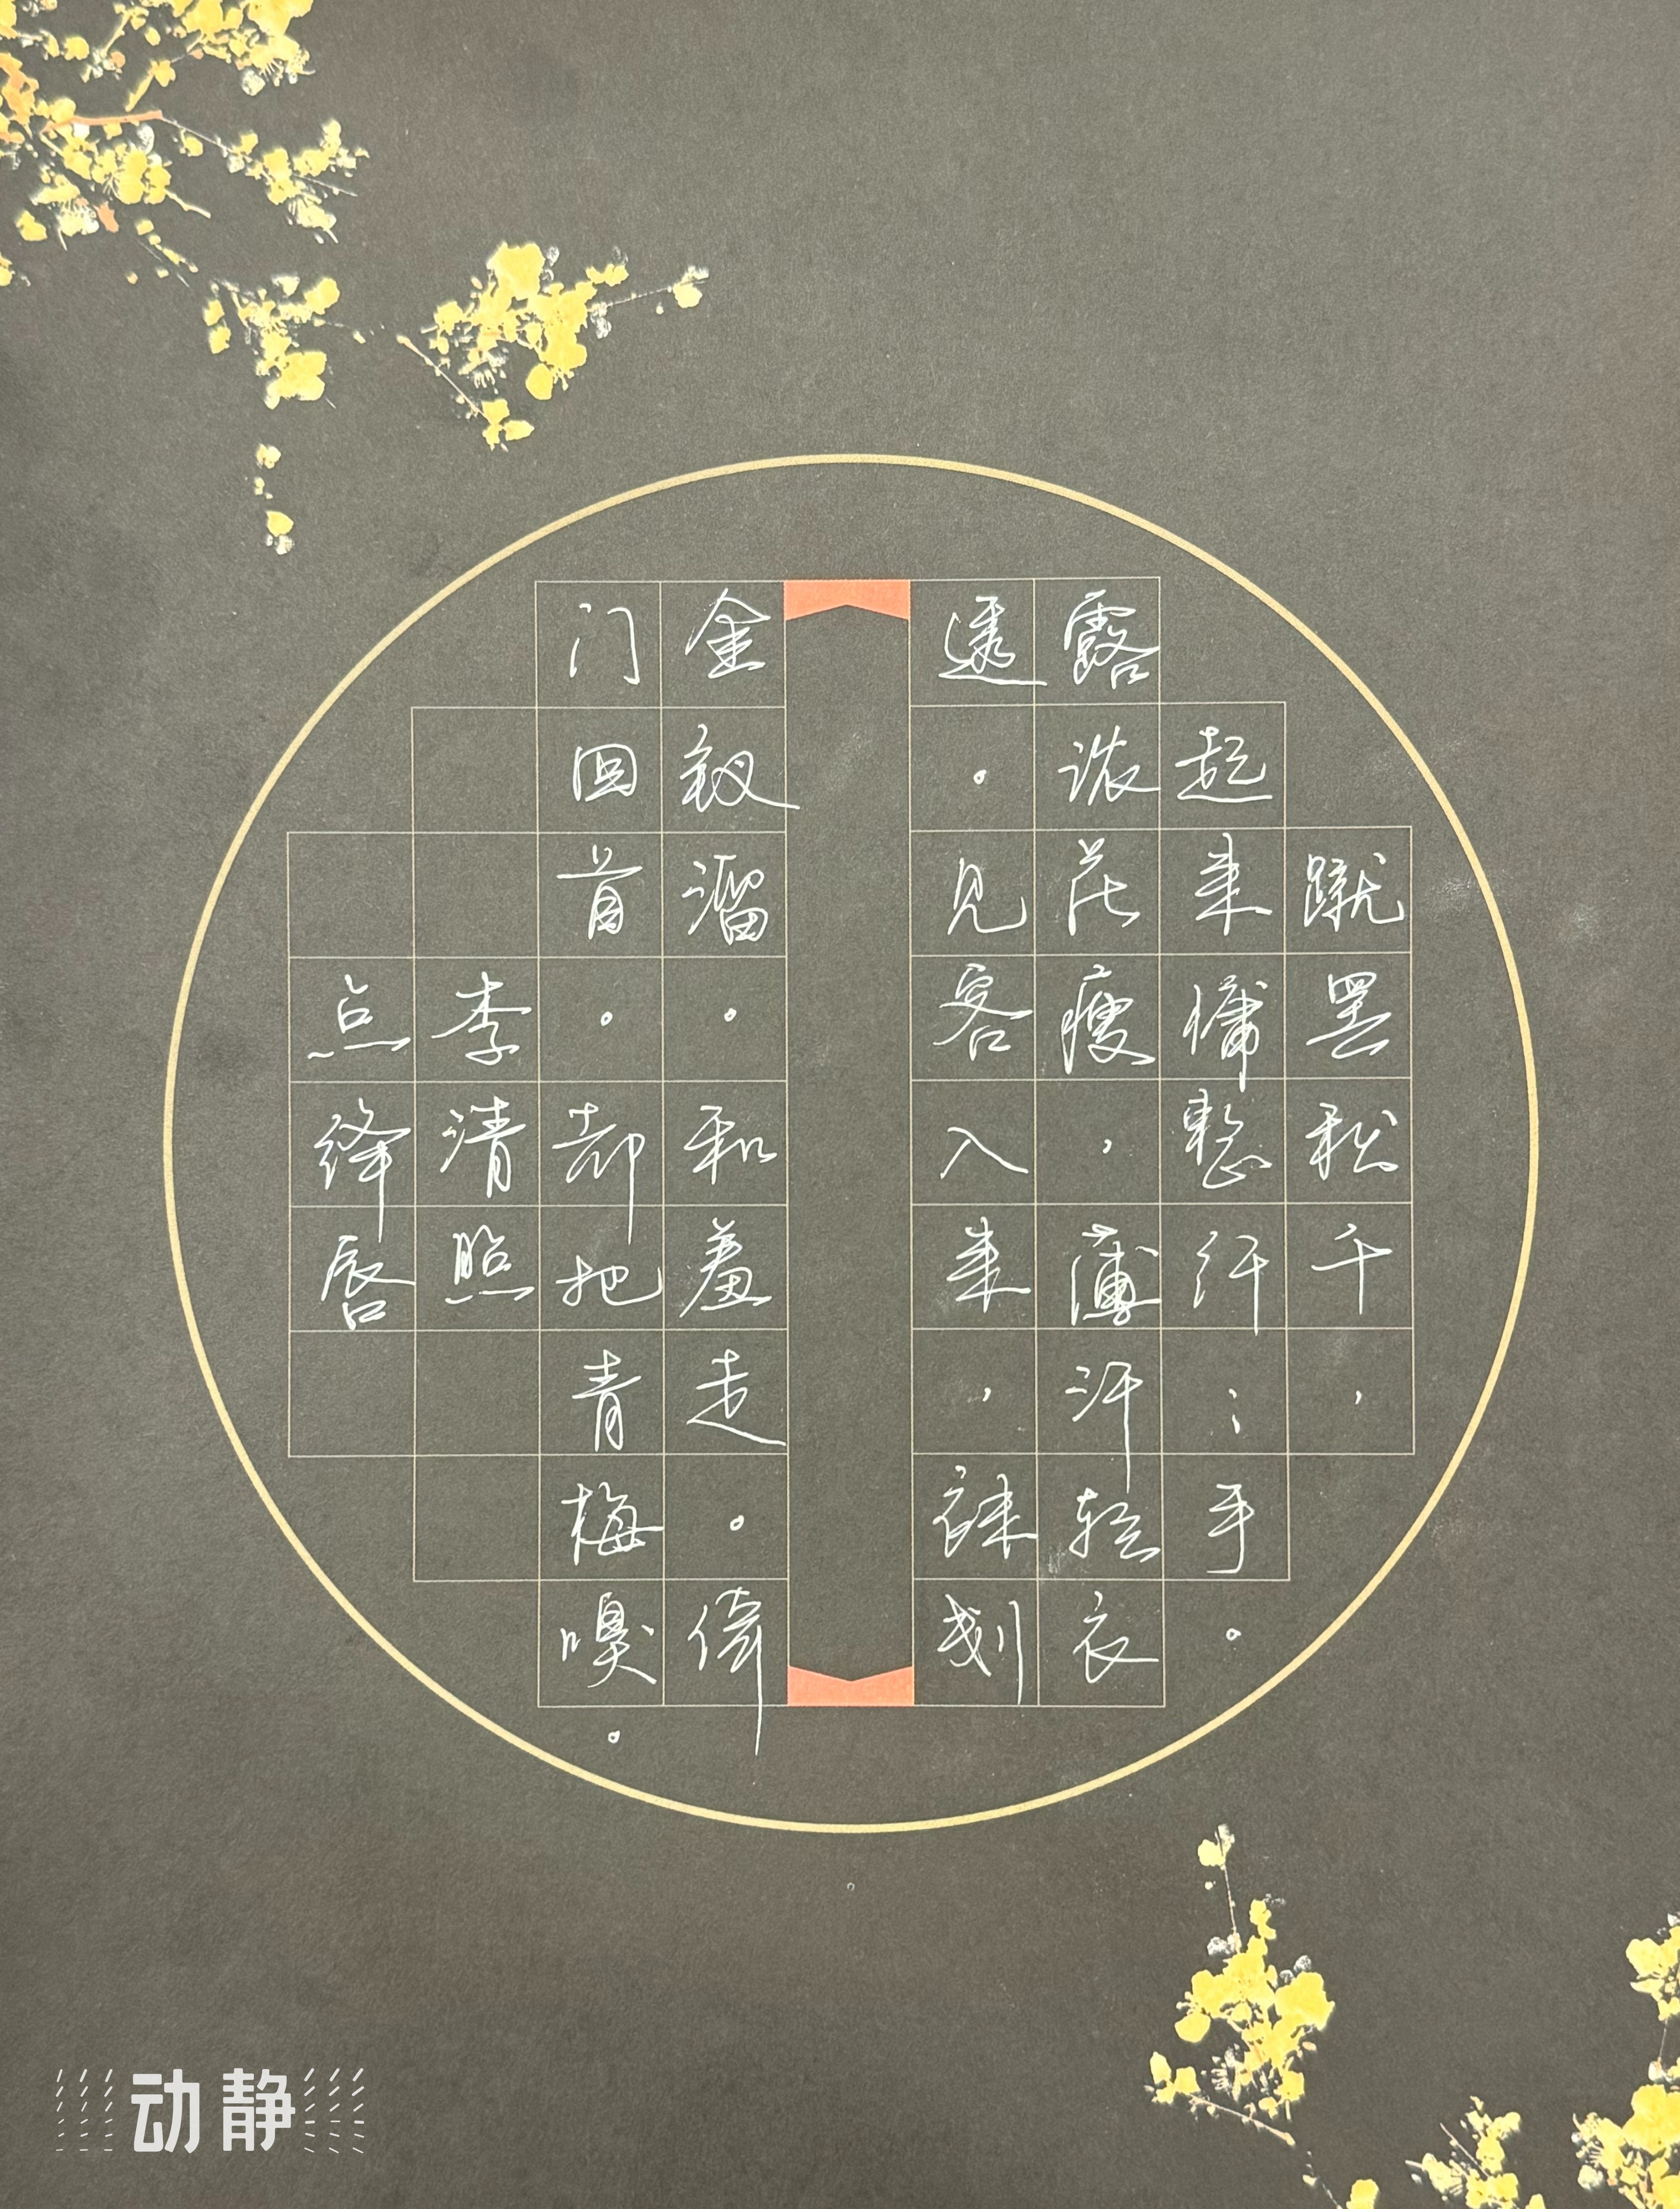 蹴罢秋千，
起来慵整纤；手。
露浓花瘦，薄汗轻衣
透。见客入来，袜刬
金钗溜。和羞走。倚
门回首。却把青梅嗅。
李清照
点绛唇
动静